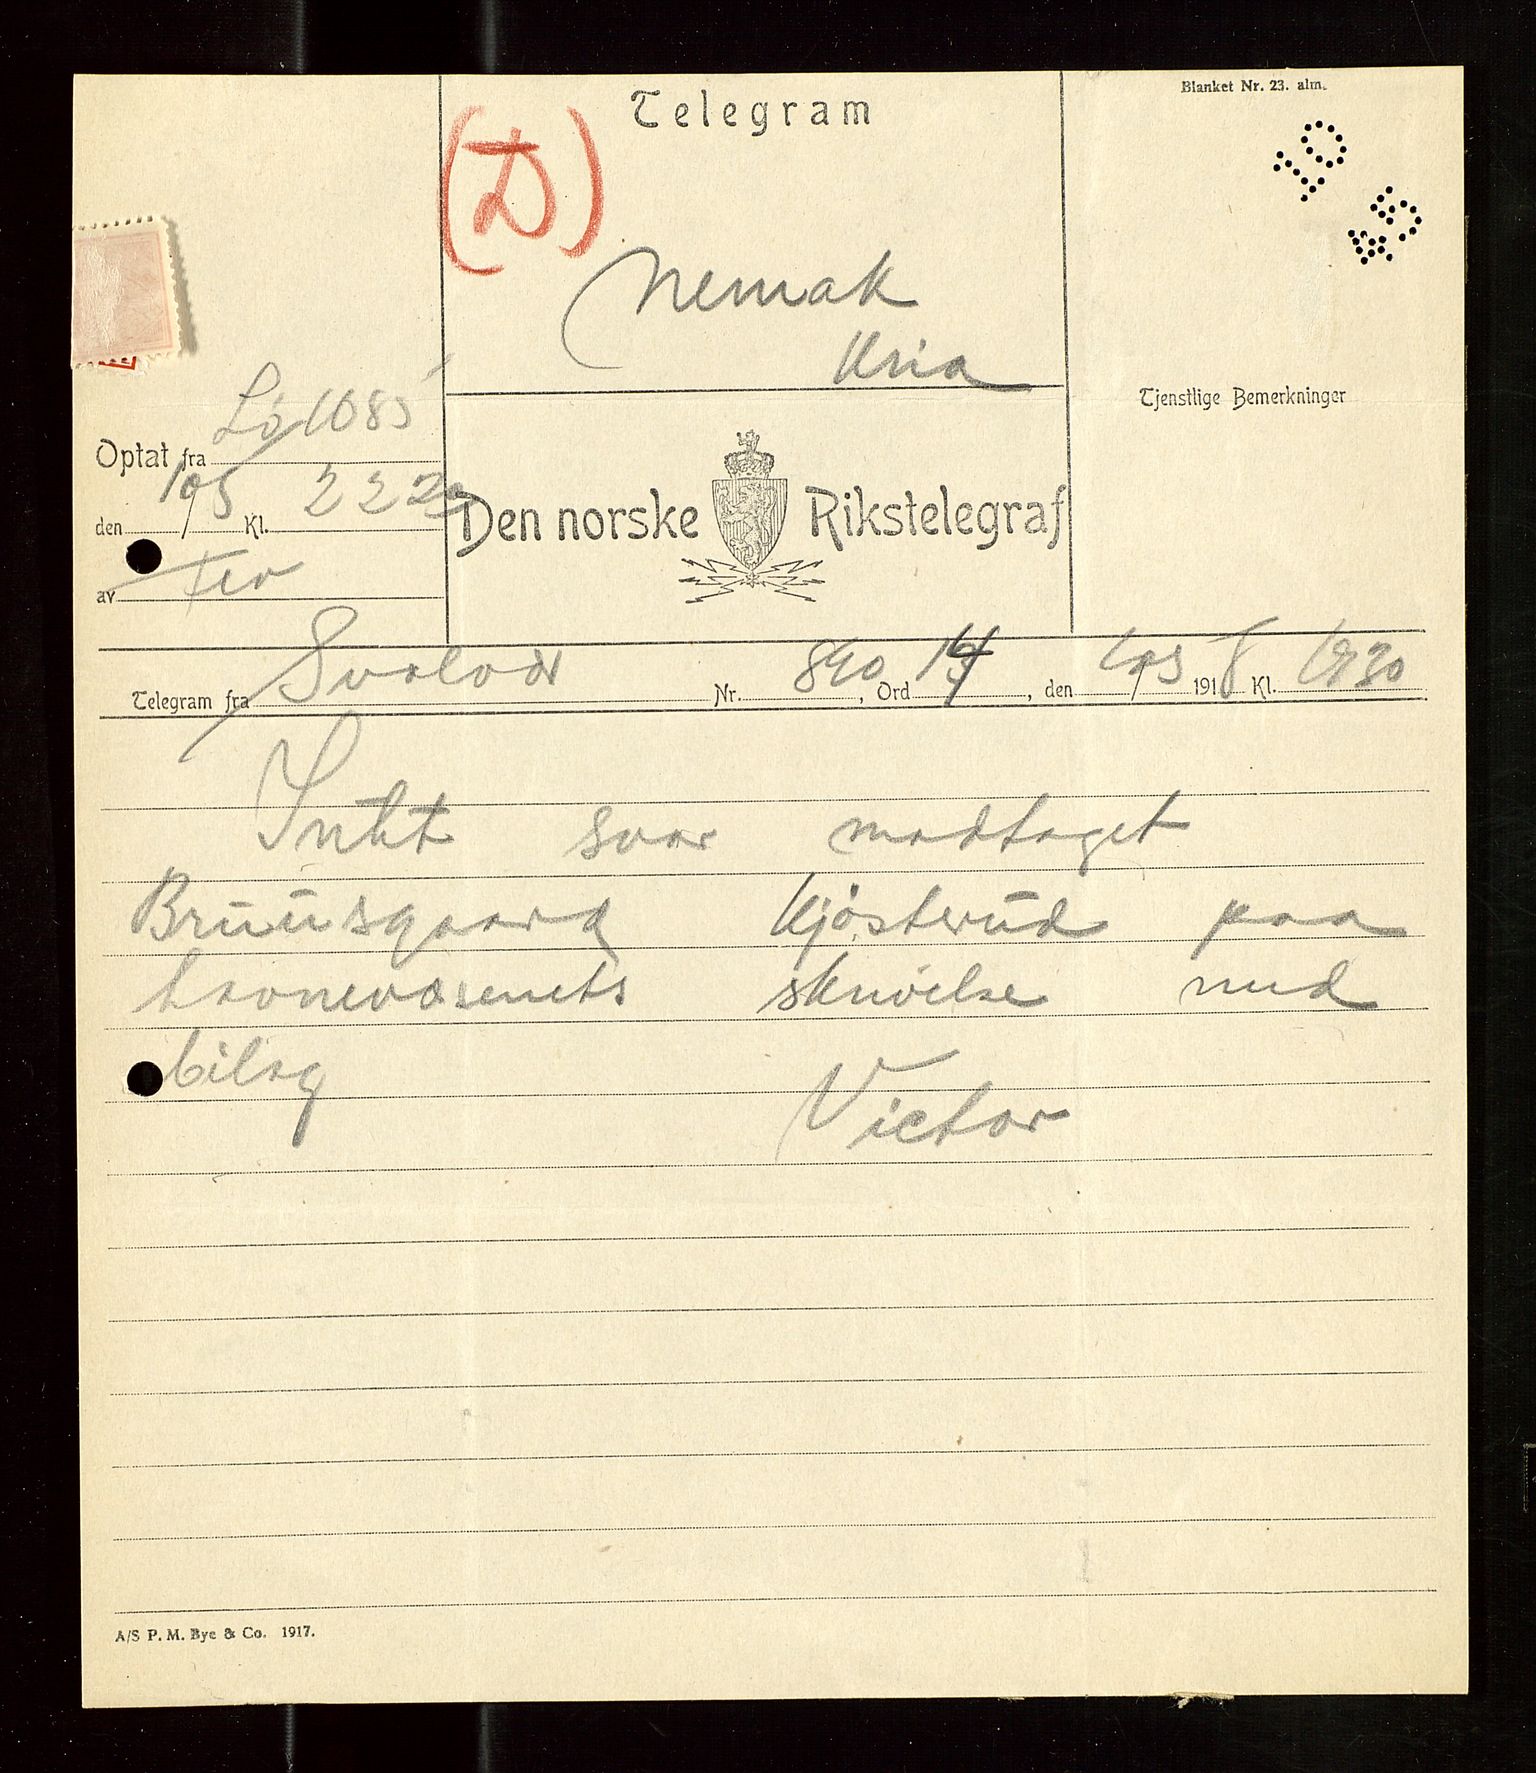 Blanket Nr. 23. alm.
Telegram
(D)
10
45
Nemak
Kria
Tjenstlige Bemerkninger
Optat fra Lö 1085
den 10/5 Kl. 22 20
av
Den norske Rikstelegraf
Telegram fra Svolvær Nr. 890, Ord 14, den 10/5 1918 Kl. 1930
Intet svar modtaget
Bruusgaard Kjösterud paa
havnevæsenets skrivelse med
bilag
Victor
A/S P. M. Bye & Co. 1917.